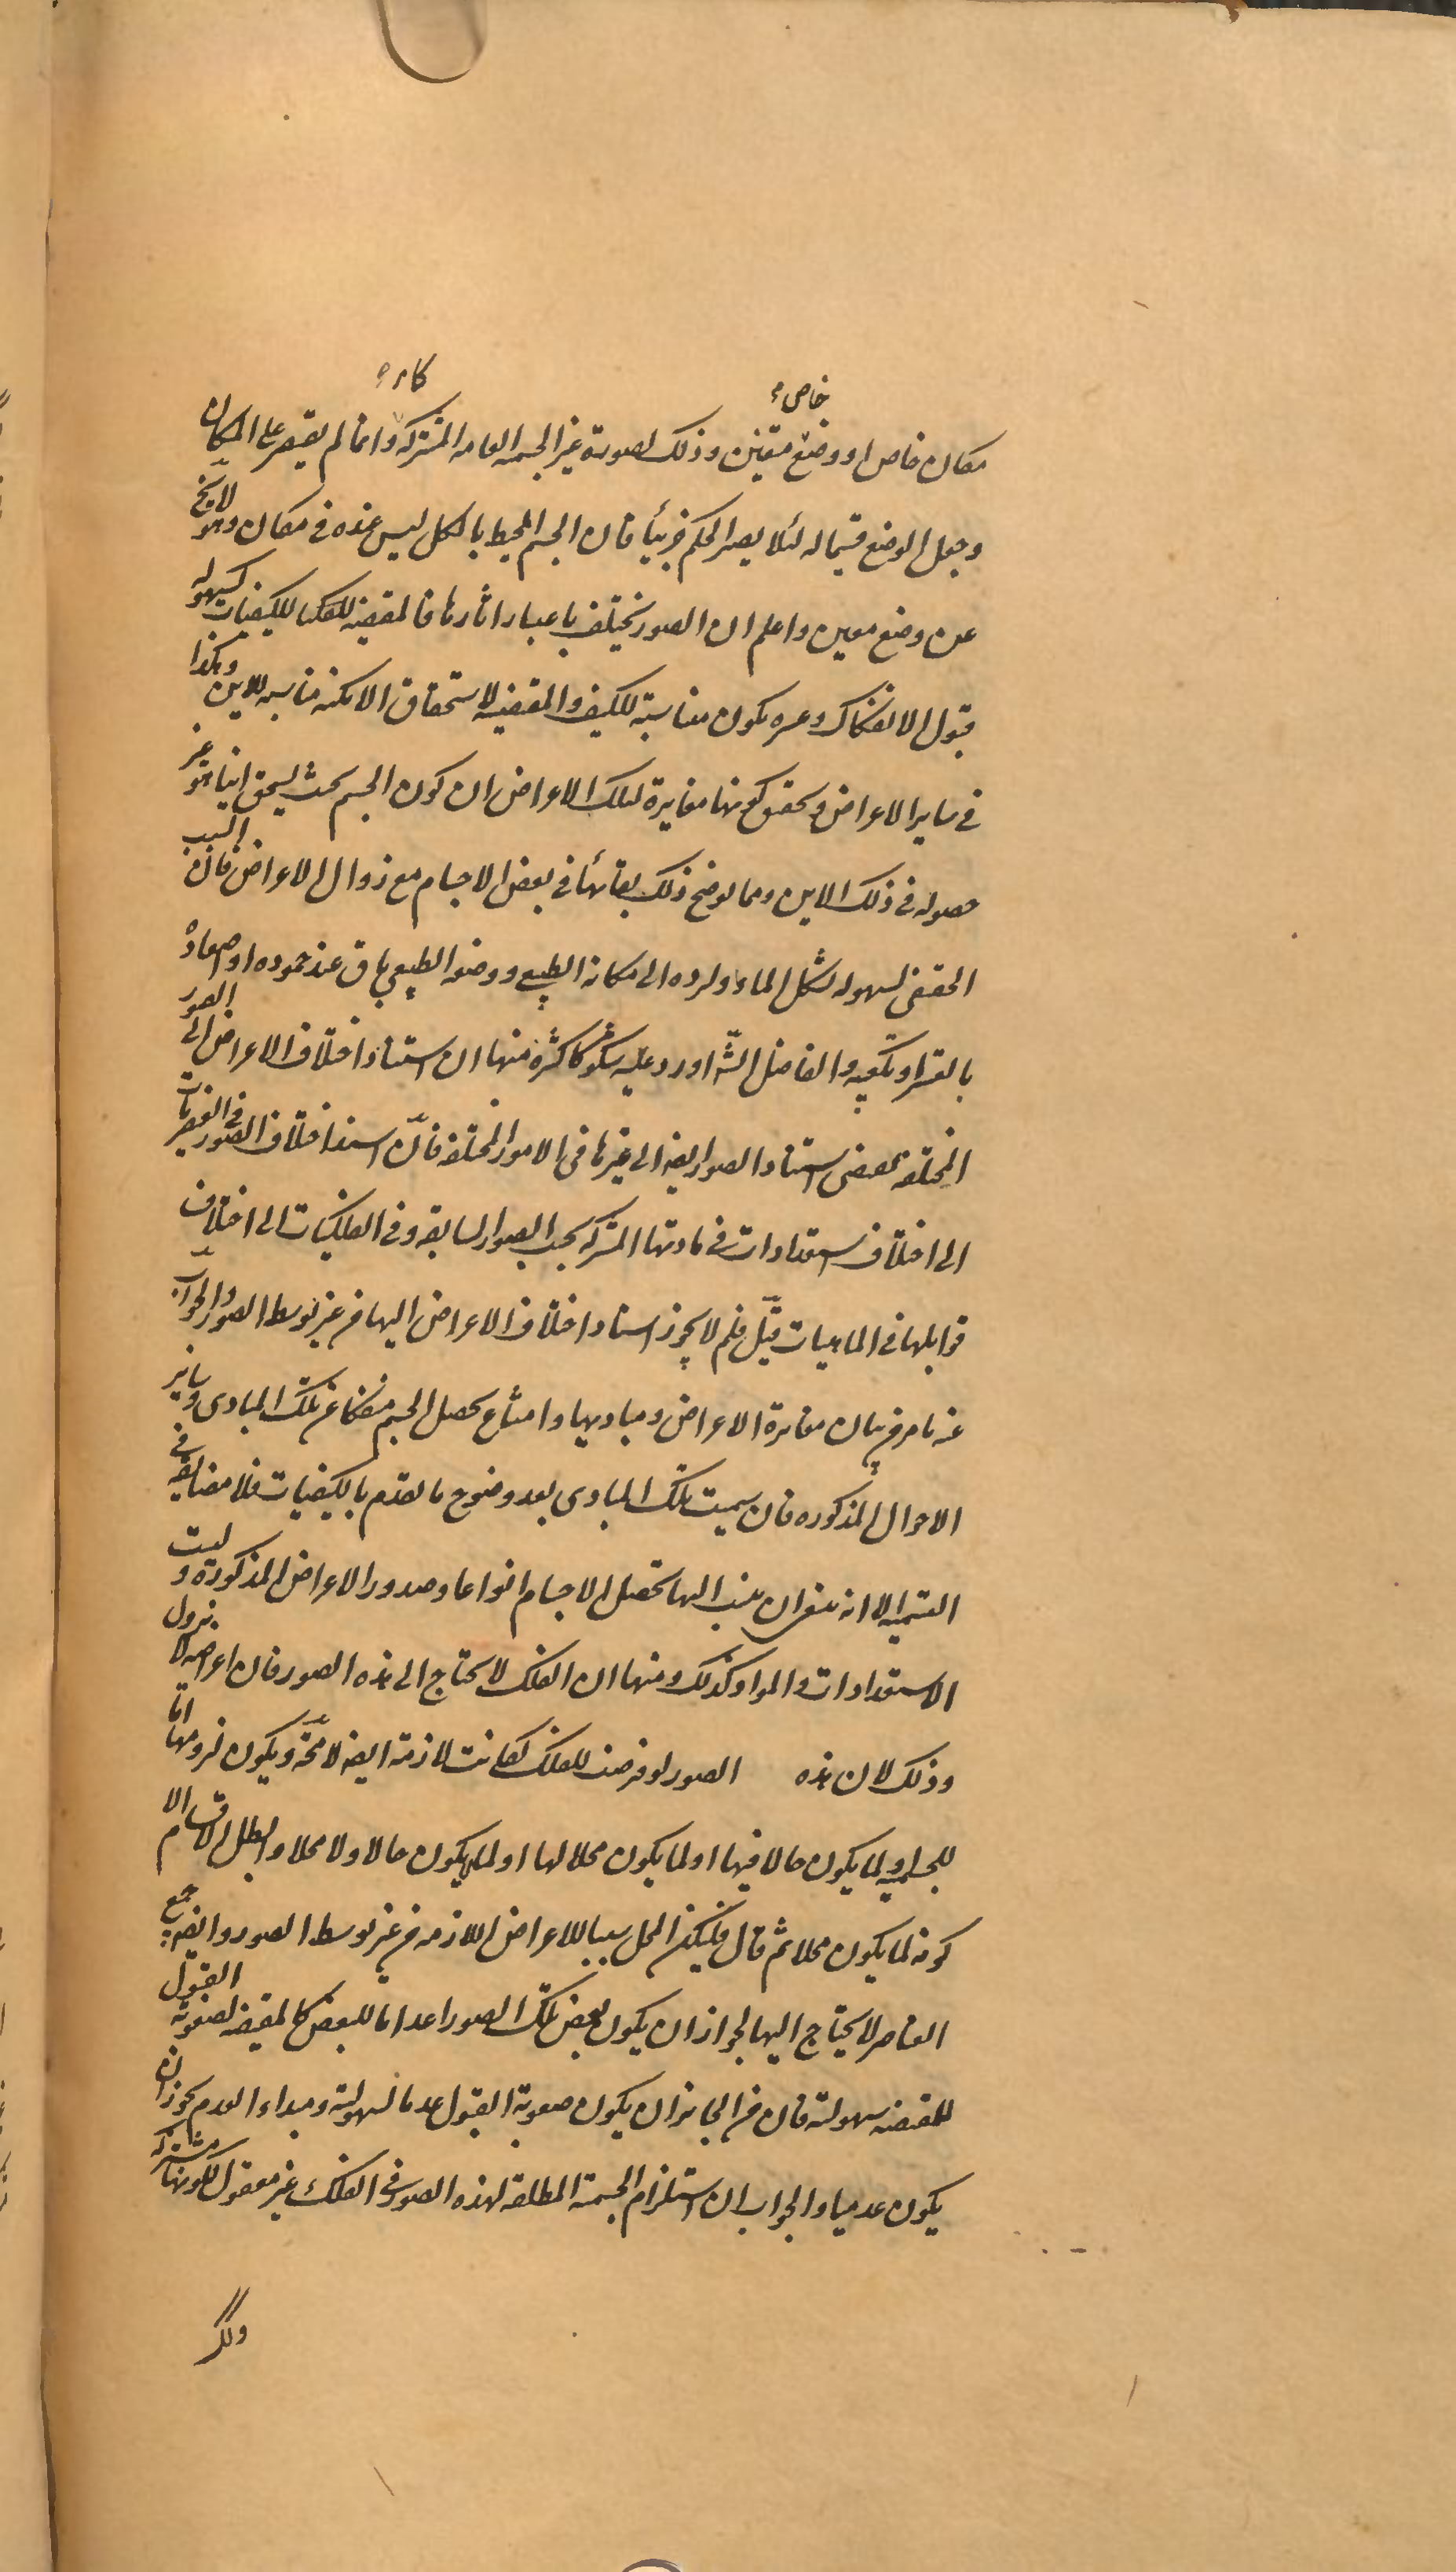 خاص
مكان خاص او وضع متعين وذلك لصورة غير الجسمية العامة المشتركة وانما لم يقتصر على المكان
وجعل الوضع قسيما له لئلا يصير الحكم جزئيا فان الجسم المحيط بالكل ليس عنده في مكان وهو لا يخ
عن وضع معين واعلم ان الصور تختلف باعتبار اثارها فالمقتضية للكيفيات كسهولة
قبول الانفكاك وعسره يكون مناسبة للكيف والمقتضية لاستحقاق الامكنة مناسبة للاين وهكذا
في ساير الاعراض وتحقق كونها مغايرة لتلك الاعراض ان كون الجسم بحيث يستحق اينا هو غير
حصوله في ذلك الاين ومما يوضح ذلك بقائها في بعض الاجسام مع زوال الاعراض فان السبب
المقتضى لسهولة تشكل الماء ولرده الى مكانه الطبيعي ووضعه الطبيعي باق عند جموده او اصعاده
بالقسر او تكعيبه والفاضل الشه اورد عليه شكوكا كثيرة منها ان استناد اختلاف الاعراض الى الصور
المختلفة يقتضى استناد الصور ايضه الى غيرها في الامور المختلفة فان اسند اختلاف الصور في العنصريات
الى اختلاف استعدادات في مادتها المشتركة بحسب الصور السابقة وفي الفلكيات الى اختلاف
قوابلها في الماهيات قيل فلم لا يجوز اسناد اختلاف الاعراض اليها من غير توسط الصور والجواب
عنه ما مر من بيان مغايرة الاعراض ومباديها وامتناع تحصل الجسم منفكا عن تلك المبادى وساير
الاحوال المذكوره فان سميت تلك المبادى بعد وضوح ما تقدم بالكيفيات فلا مضايقة في
التسمية الا انه ينبغى ان ينسب اليها تحصل الاجسام انواعا وصدور الاعراض المذكورة وليست
الاستعدادات والمواد كذلك ومنها ان الفلك لا يحتاج الى هذه الصور فان اعراضه لا تزول
وذلك لان هذه الصور لو فرضت للفلك لكانت لازمة ايضه لا محة ويكون لزومها اما
للجسمية او لما يكون حالا فيها او لما يكون محلا لها او لما لا يكون حالا ولا محلا وابطل الاقسام الا
كونه لما يكون محلا ثم قال فليكن المحل سببا للاعراض اللازمة من غير توسط الصور وايضه جمع
العناصر لا يحتاج اليها لجواز ان يكون بعض تلك الصور اعداما للبعض كالمقتضية لصعوبة القبول
للمقتضية سهولته فان من الجايز ان يكون صعوبة القبول عدما لسهولته ومبداء العدم يجوز ان
يكون عدميا والجواب ان استلزام الجسمية المطلقة لهذه الصور في الفلك غير معقول لكونها مشتركة